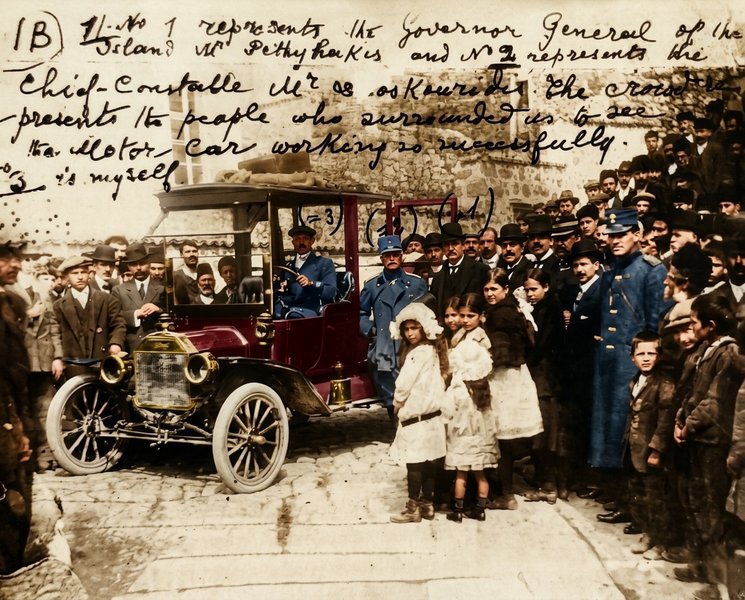 1B) 1/- No 1 represents the Governor General of the
Island Mr Pethyhakis and No 2 represents the
Chief-Constable Mr as oskouridis. The crowd re-
presents the people who surrounded us to see
the Motor-Car working so successfully.
No 3 is myself
(=3) (1)